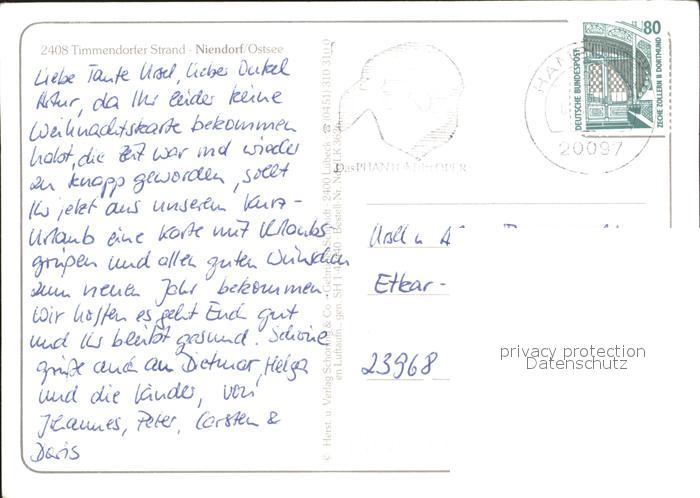 2408 Timmendorfer Strand - Niendorf/Ostsee
Liebe Tante Ursel, lieber Onkel
Artur, da Ihr leider keine
Weihnachtskarte bekommen
habt, die Zeit war mal wieder
zu knapp geworden, sollt
Ihr jetzt aus unserem Kurz-
Urlaub eine Karte mit Urlaubs
grüßen und allen guten Wünschen
zum neuen Jahr bekommen.
Wir hoffen es geht Euch gut
und Ihr bleibt gesund. Schöne
grüße auch an Dietmar, Helga
und die Kinder, von
Johannes, Peter, Carsten &
Doris
Herst. u. Verlag Schöning & Co. + Gebrüder Schmidt · 2400 Lübeck
Das PHANTOM der OPER
HAM
20097
80
DEUTSCHE BUNDESPOST
ZECHE ZOLLERN II DORTMUND
Etkar-
23968
privacy protection
Datenschutz